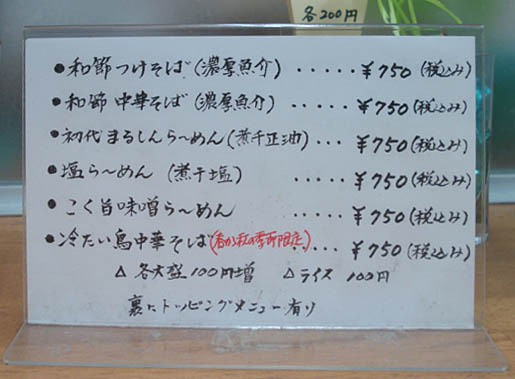 各200円
●和節つけそば(濃厚魚介) ・・・・・ ¥750(税込み)
●和節 中華そば(濃厚魚介) ・・・・ ¥750(税込み)
●初代まるしんら〜めん(煮干正油)・・・ ¥750(税込み)
●塩ら〜めん (煮干塩) ・・・・ ¥750(税込み)
●こく旨味噌ら〜めん ・・・・ ¥750(税込み)
●冷たい鳥中華そば(春から秋の季節限定) ・・・ ¥750(税込み)
△ 各大盛100円増 △ライス 100円
裏にトッピングメニュー有り